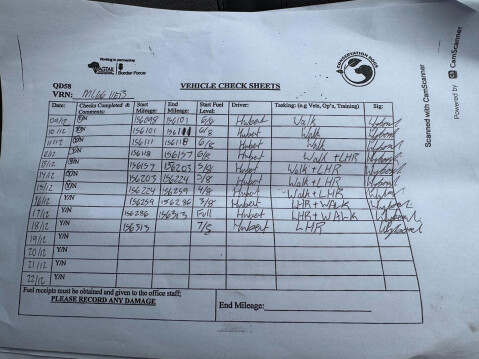 Working in partnership
Border Force
CONSERVATION DOGS
QD58
VEHICLE CHECK SHEETS
VRN:
Date: Checks Completed & Comments: Start Mileage: End Mileage: Start Fuel Level: Driver: Tasking: (e.g Vets, Op's, Training) Sig:
Y/N 156101 6/8 Hubert Walk
10/12 Y/N 156101 6/8 Hubert Walk
11/12 Y/N 156111 156118 6/8 Hubert Walk
Y/N 156118 156157 6/8 Hubert Walk + LHR
13/12 Y/N 156157 156203 5/8 Hubert Walk + LHR
14/12 Y/N 156203 156224 Hubert Walk + LHR
15/12 Y/N 156224 156259 4/8 Hubert Walk + LHR
16/12 Y/N 156259 156286 3/8 Hubert LHR + WALK
17/12 Y/N 156286 156313 Full Hubert LHR + WALK
18/12 Y/N 156313 Hubert LHR
19/12 Y/N
20/12 Y/N
21/12 Y/N
22/12 Y/N
Fuel receipts must be obtained and given to the office staff;
PLEASE RECORD ANY DAMAGE
End Mileage:
Scanned with CamScanner
Powered by CS CamScanner